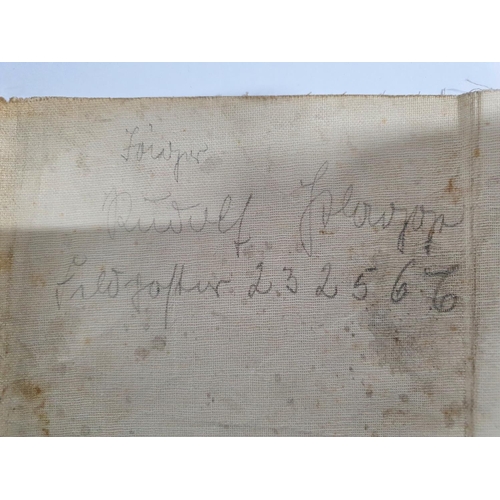 Jäger
Rudolf
Feldpostnr. 2 3 2 5 6 C